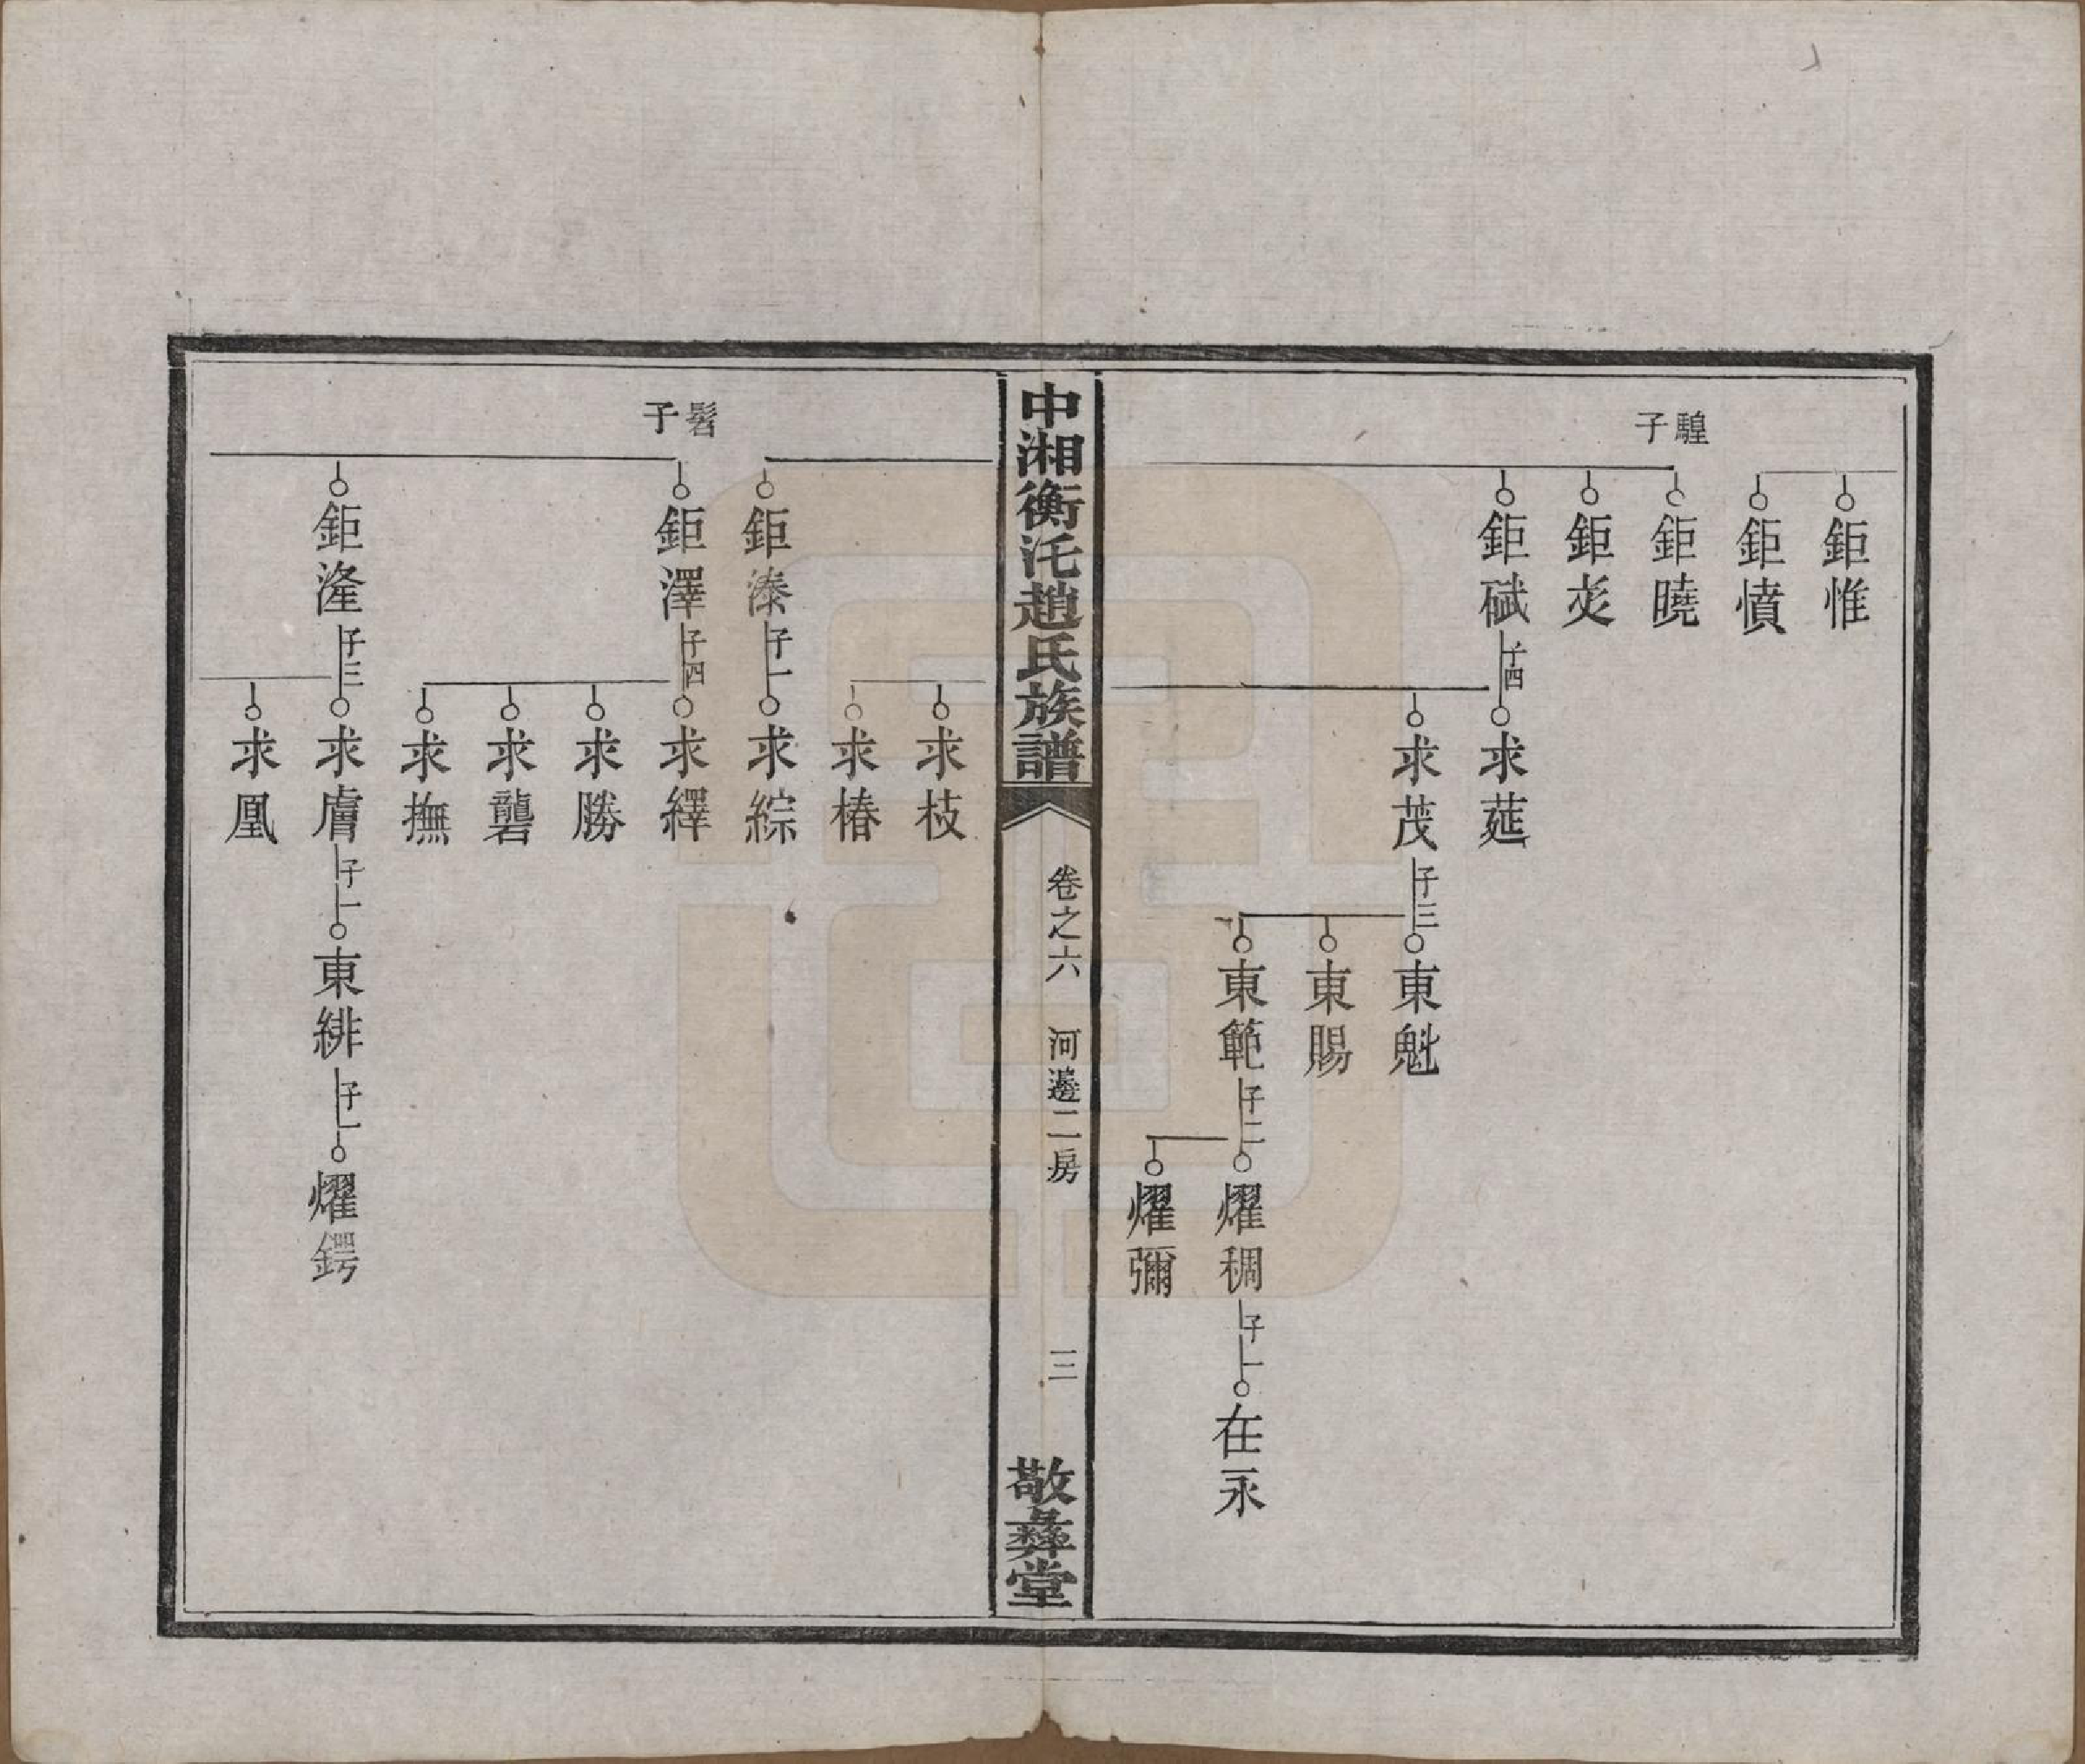 鉅惟
鉅憤
騜子
鉅曉
鉅炗
鉅碔
子四
求莚
求茂
子三
東魁
東賜
東範
子二
耀稠
子一
在永
耀彌
中湘衡汑趙氏族譜
卷之六
河邊二房
三
敬彝堂
求枝
求椿
鉅溱
子一
求綜
髫子
鉅澤
子四
求繹
求勝
求礱
求撫
鉅漋
子三
求膚
子一
東緋
子一
耀鍔
求凰